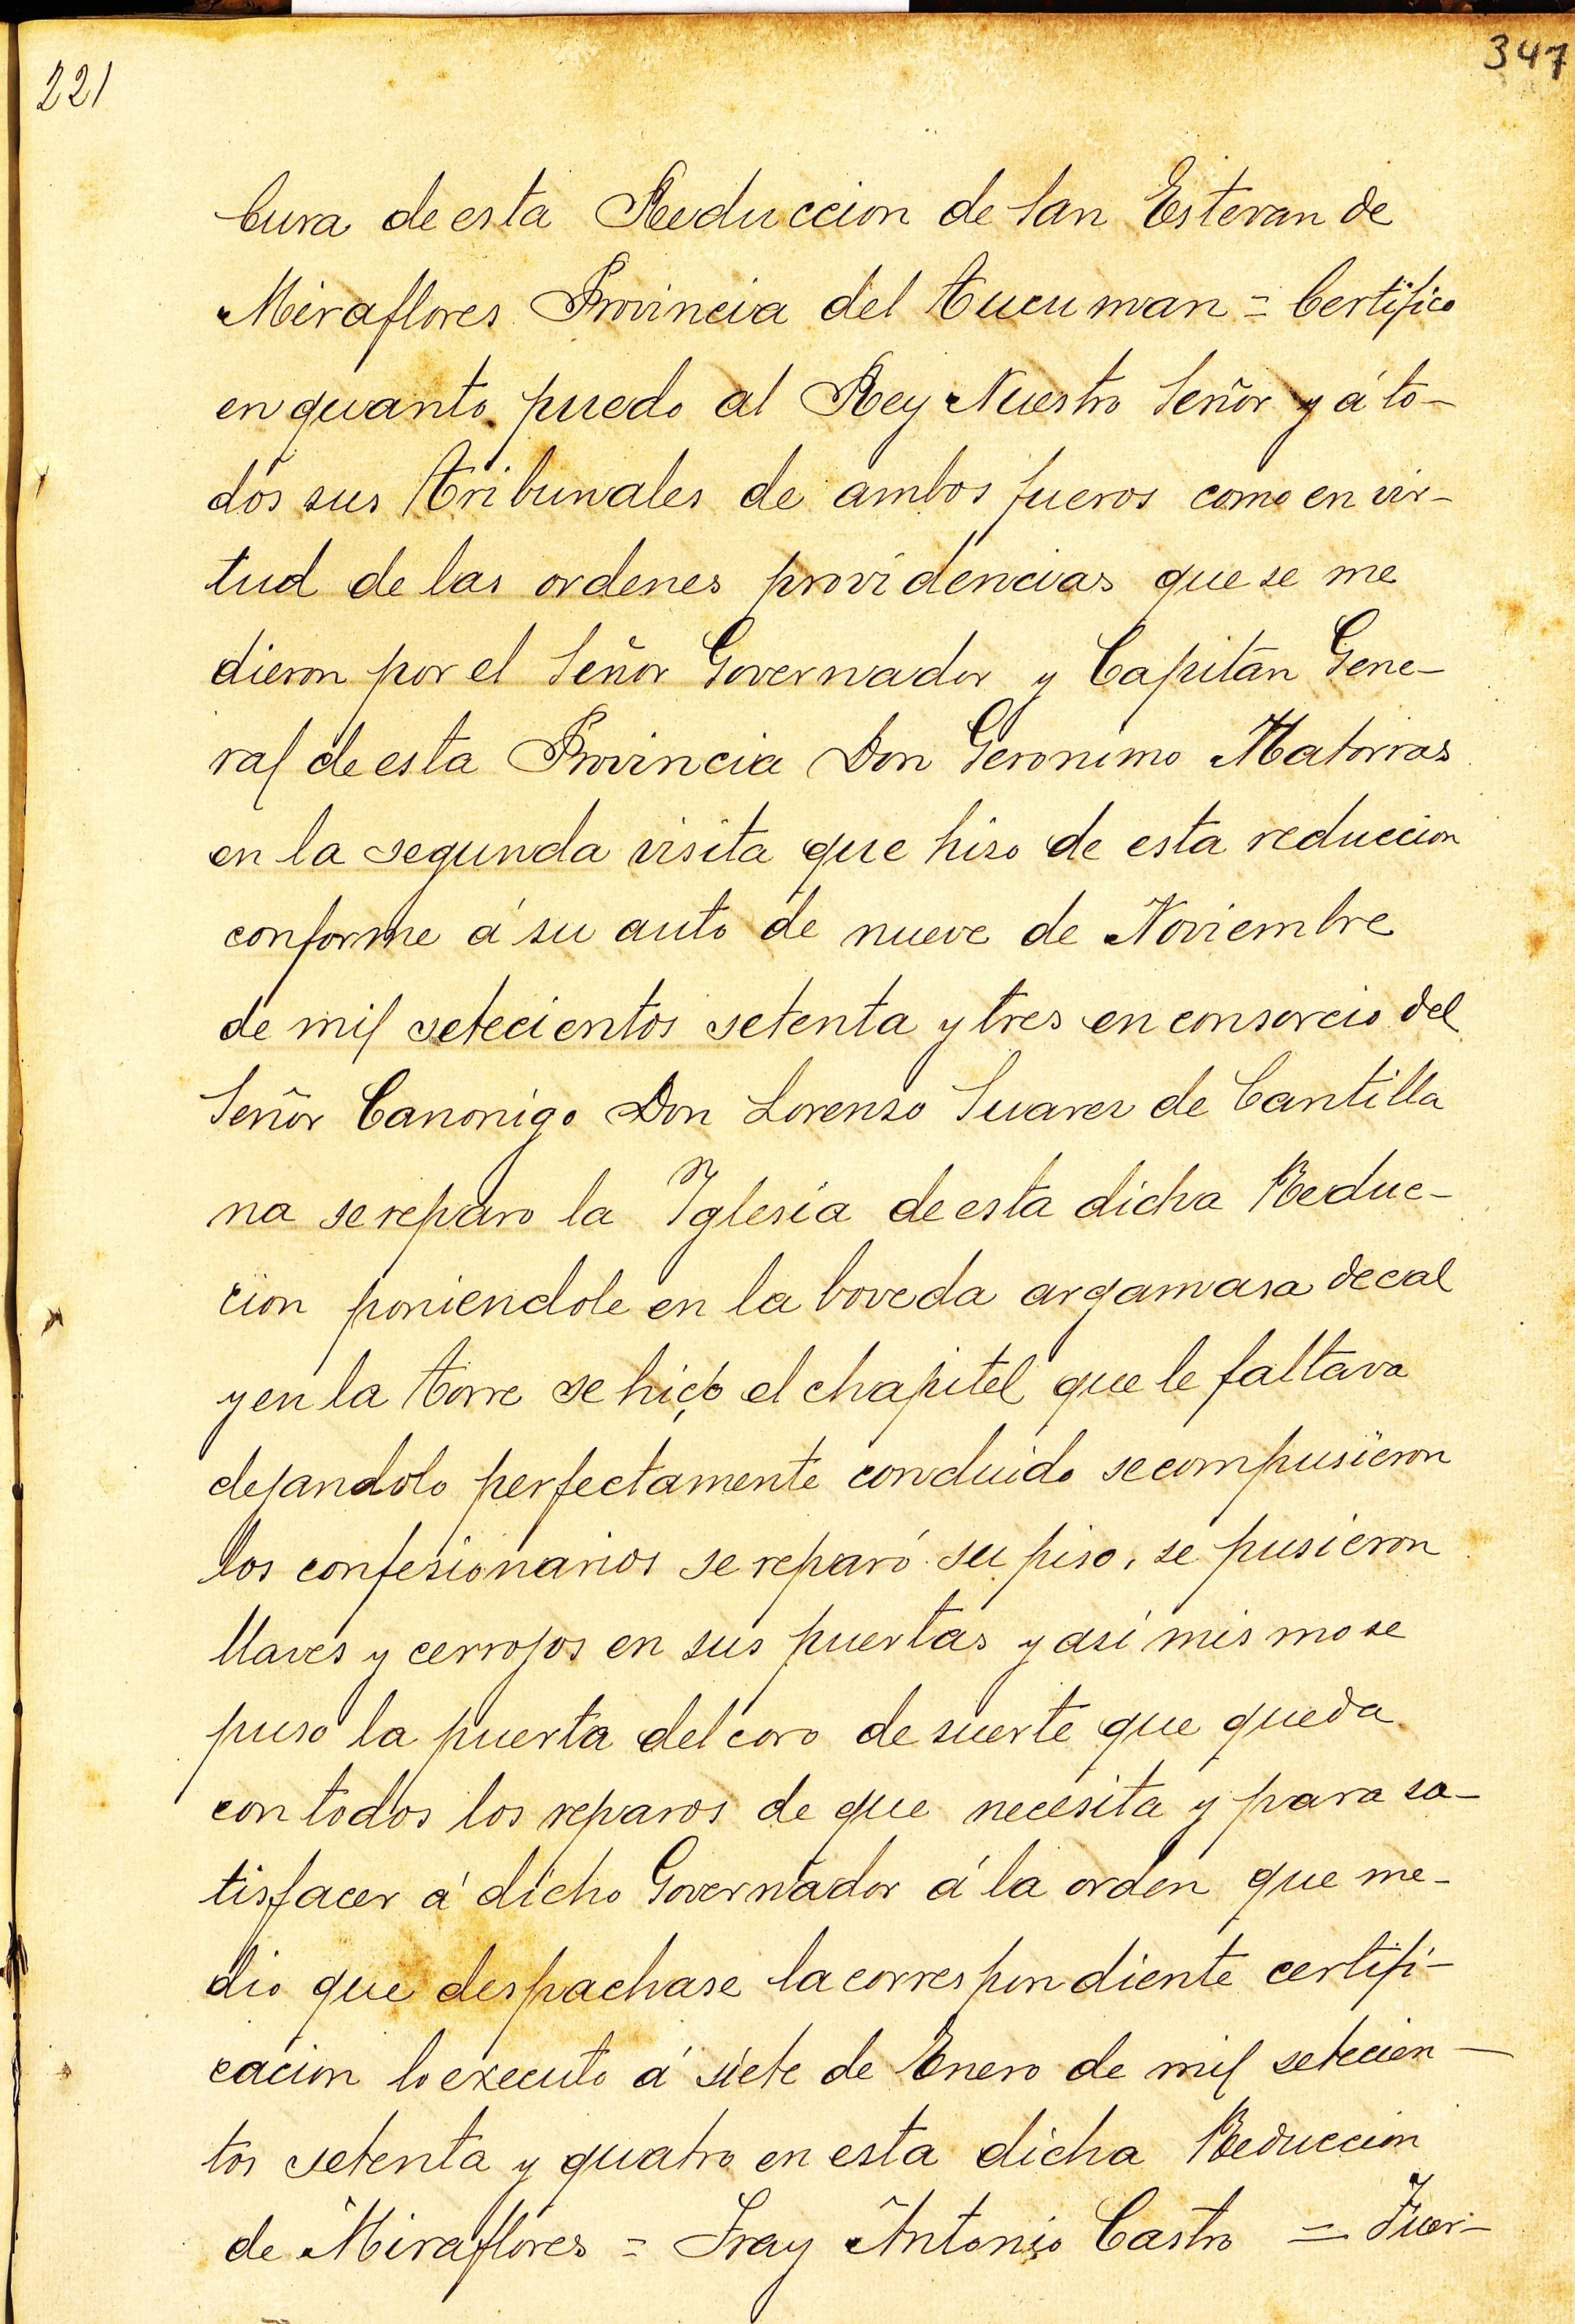 221
347
Cura de esta Reduccion de San Estevan de
Miraflores Provincia del Tucuman = Certifico
en quanto puedo al Rey Nuestro Señor y á to-
dos sus Tribunales de ambos fueros como en vir-
tud de las ordenes providencias que se me
dieron por el Señor Governador y Capitan Gene-
ral de esta Provincia Don Geronimo Matorras
en la segunda visita que hiso de esta reduccion
conforme á su auto de nueve de Noviembre
de mil setecientos setenta y tres en consorcio del
Señor Canonigo Don Lorenso Suarez de Cantilla
na se reparo la Iglesia de esta dicha Reduc-
cion poniendole en la boveda argamasa de cal
y en la torre se hiço el chapitel que le faltava
dejandolo perfectamente concluido se compusieron
los confesionarios se reparó su piso, se pusieron
llaves y cerrojos en sus puertas y asi mismo se
puso la puerta del coro de suerte que queda
con todos los reparos de que necesita y para sa-
tisfacer á dicho Governador á la orden que me-
dio que despachase la correspondiente certifi-
cacion lo executo á siete de Enero de mil setecien-
tos setenta y quatro en esta dicha Reduccion
de Miraflores = Fray Antonio Castro = Fuer-